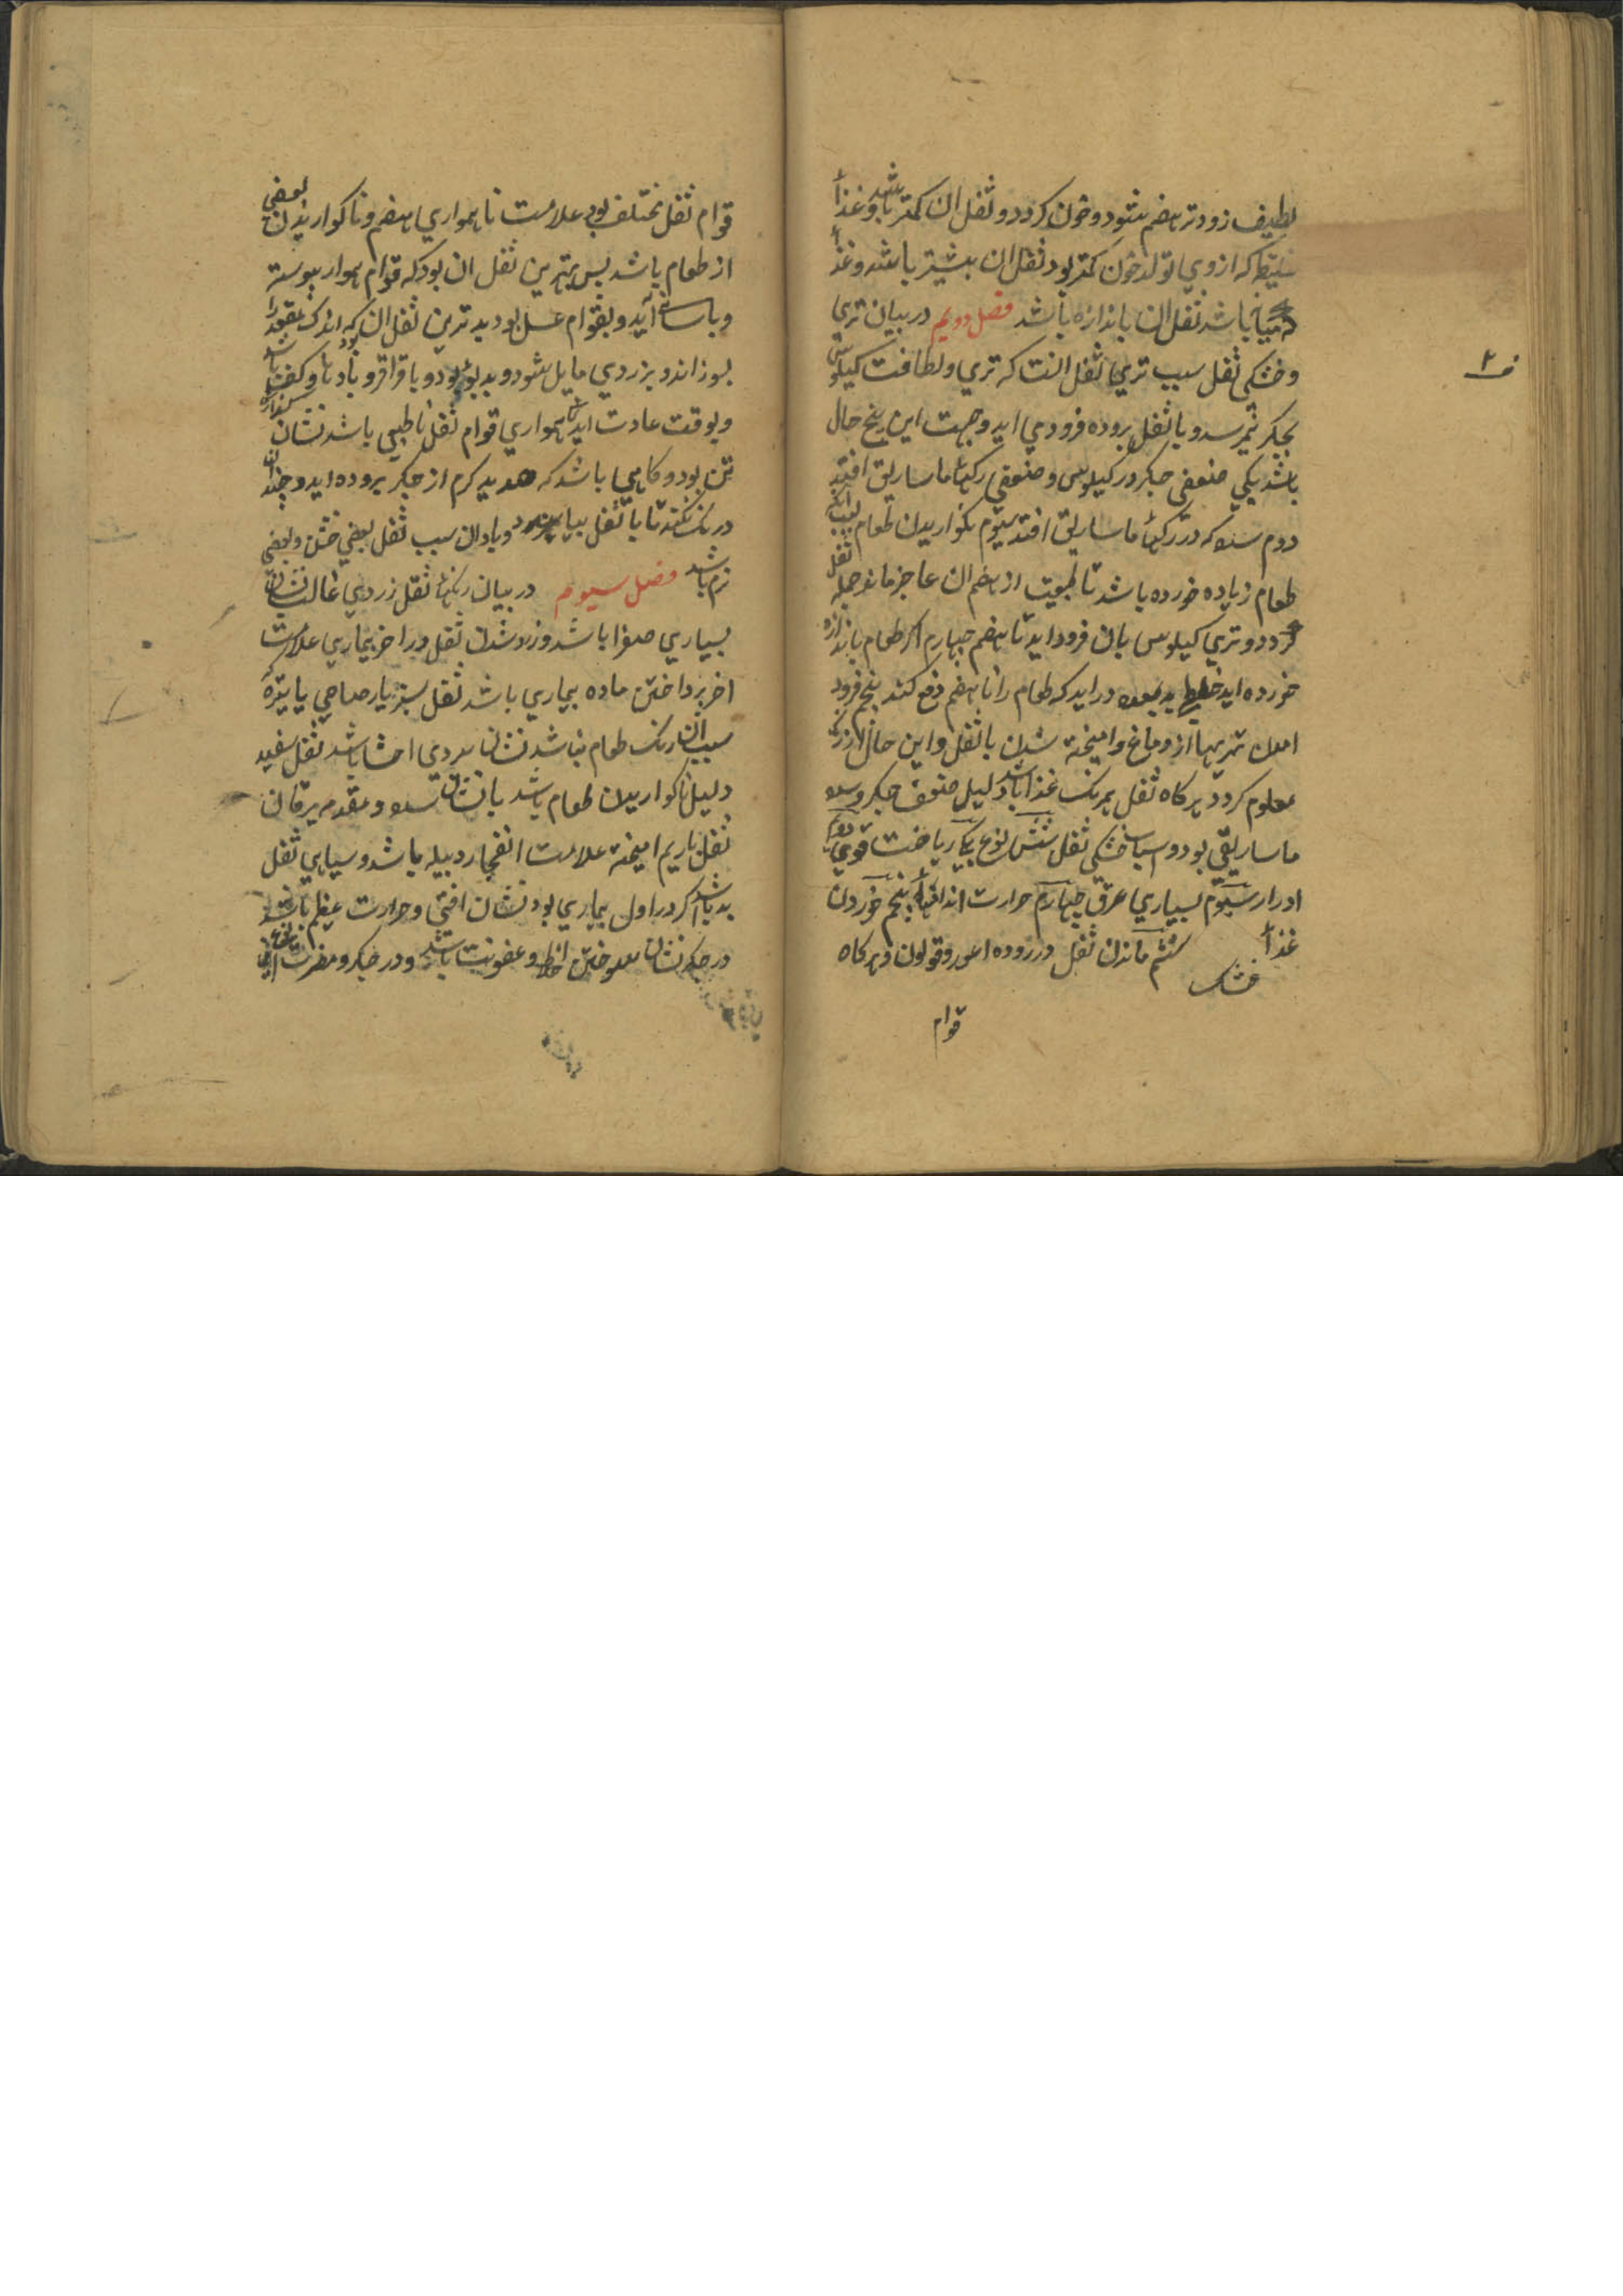 لطیف زودتر هضم شود و خون کردد و ثفل ان کمتر باشد و غذاء
غلیظ که از وی تولد خون کمتر بود ثفل ان بیشتر باشد و غذا
که میانه باشد ثفل ان باندازه باشد فصل دویم در بیان تری
و خشکی ثفل سبب تری ثفل انست که تری و لطافت کیلوس
بجکر نمیرسد و با ثفل بروده فرود می اید و جهت این پنج حال
باشد یکی ضعفی جکر در کیلوس و ضعفی رکهاء ماساریق افتد
دوم سده که در رکهاء ماساریق افتد سیوم نکواریدن طعام بسبب انکه
طعام زیاده خورده باشد تا طبیعت از هضم ان عاجز ماند و جمله ثفل
کردد و تری کیلوس بان فرود اید نا هضم چهارم اکر طعام باندازه
خورده اید خلط بد بمعده در اید که طعام را نا هضم دفع کند پنجم فرود
امدن تریها از دماغ و امیخته شدن با ثفل و این حال از رنک
معلوم کردد هر کاه ثفل برنک غذا باشد دلیل ضعف جکر و سده
ماساریقی بود و اسباب خشکی ثفل شش نوع یکی ریاضت قوی دوم
ادرار سیوم بسیاری عرق چهارم حرارت اندامها پنجم خوردن
غذاء خشک ششم ماندن ثفل در روده اعور و قولون و هر کاه
قوام
ف ۲
قوام ثفل مختلف بود علامت ناهمواری هضم و ناکواریدن بعضی
از طعام باشد پس بهترین ثفل ان بود که قوام هموار پیوسته
و باسانی آید و بقوام عسل بود بدترین ثفل ان بود که اندک مقعد را
بسوزاند و بزردی مایل شود و بد بوی بود و با قراقر و بادها و کفت باشد
و بوقت عادت اید ناهمواری قوام ثفل نا طبیعی باشد نشان
تن بود و کاهی باشد که صدید کرم از جکر بروده اید و چندان
درنک نکند تا با ثفل بیامیزد و بادان سبب ثفل بعضی خشن و بعضی
نرم باشد فصل سیوم در بیان رنکهاء ثفل زردی غالب نشان
بسیاری صفرا باشد و زرد شدن ثفل در اخر بیماری علامت
اخر پرداختن ماده بیماری باشد ثفل سبز یا رصاصی یا تیره
سبب ان رنک طعام نباشد نشان سردی احشا باشد ثفل سفید
دلیل ناکواریدن طعام باشد یا نشان سده و مقدمه یرقان
ثفل با ریم امیخته علامت انفجار دبیله باشد و سیاهی ثفل
بد باشد اکر در اول بیماری بود نشان افتی و حرارت عظیم باشد
در جکر نشان سوختن اخلاط و عفونیت باشد و در جکر و مضرت